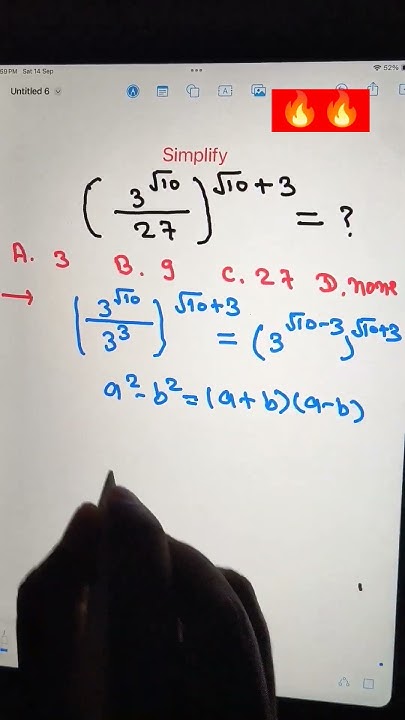 :59 PM Sat 14 Sep
52%
Untitled 6
A
🔥🔥
Simplify
(3^√10 / 27)^(√10+3) = ?
A. 3 B. 9 C. 27 D. none
→ (3^√10 / 3^3)^(√10+3) = (3^(√10-3))^(√10+3)
a² - b² = (a+b)(a-b)